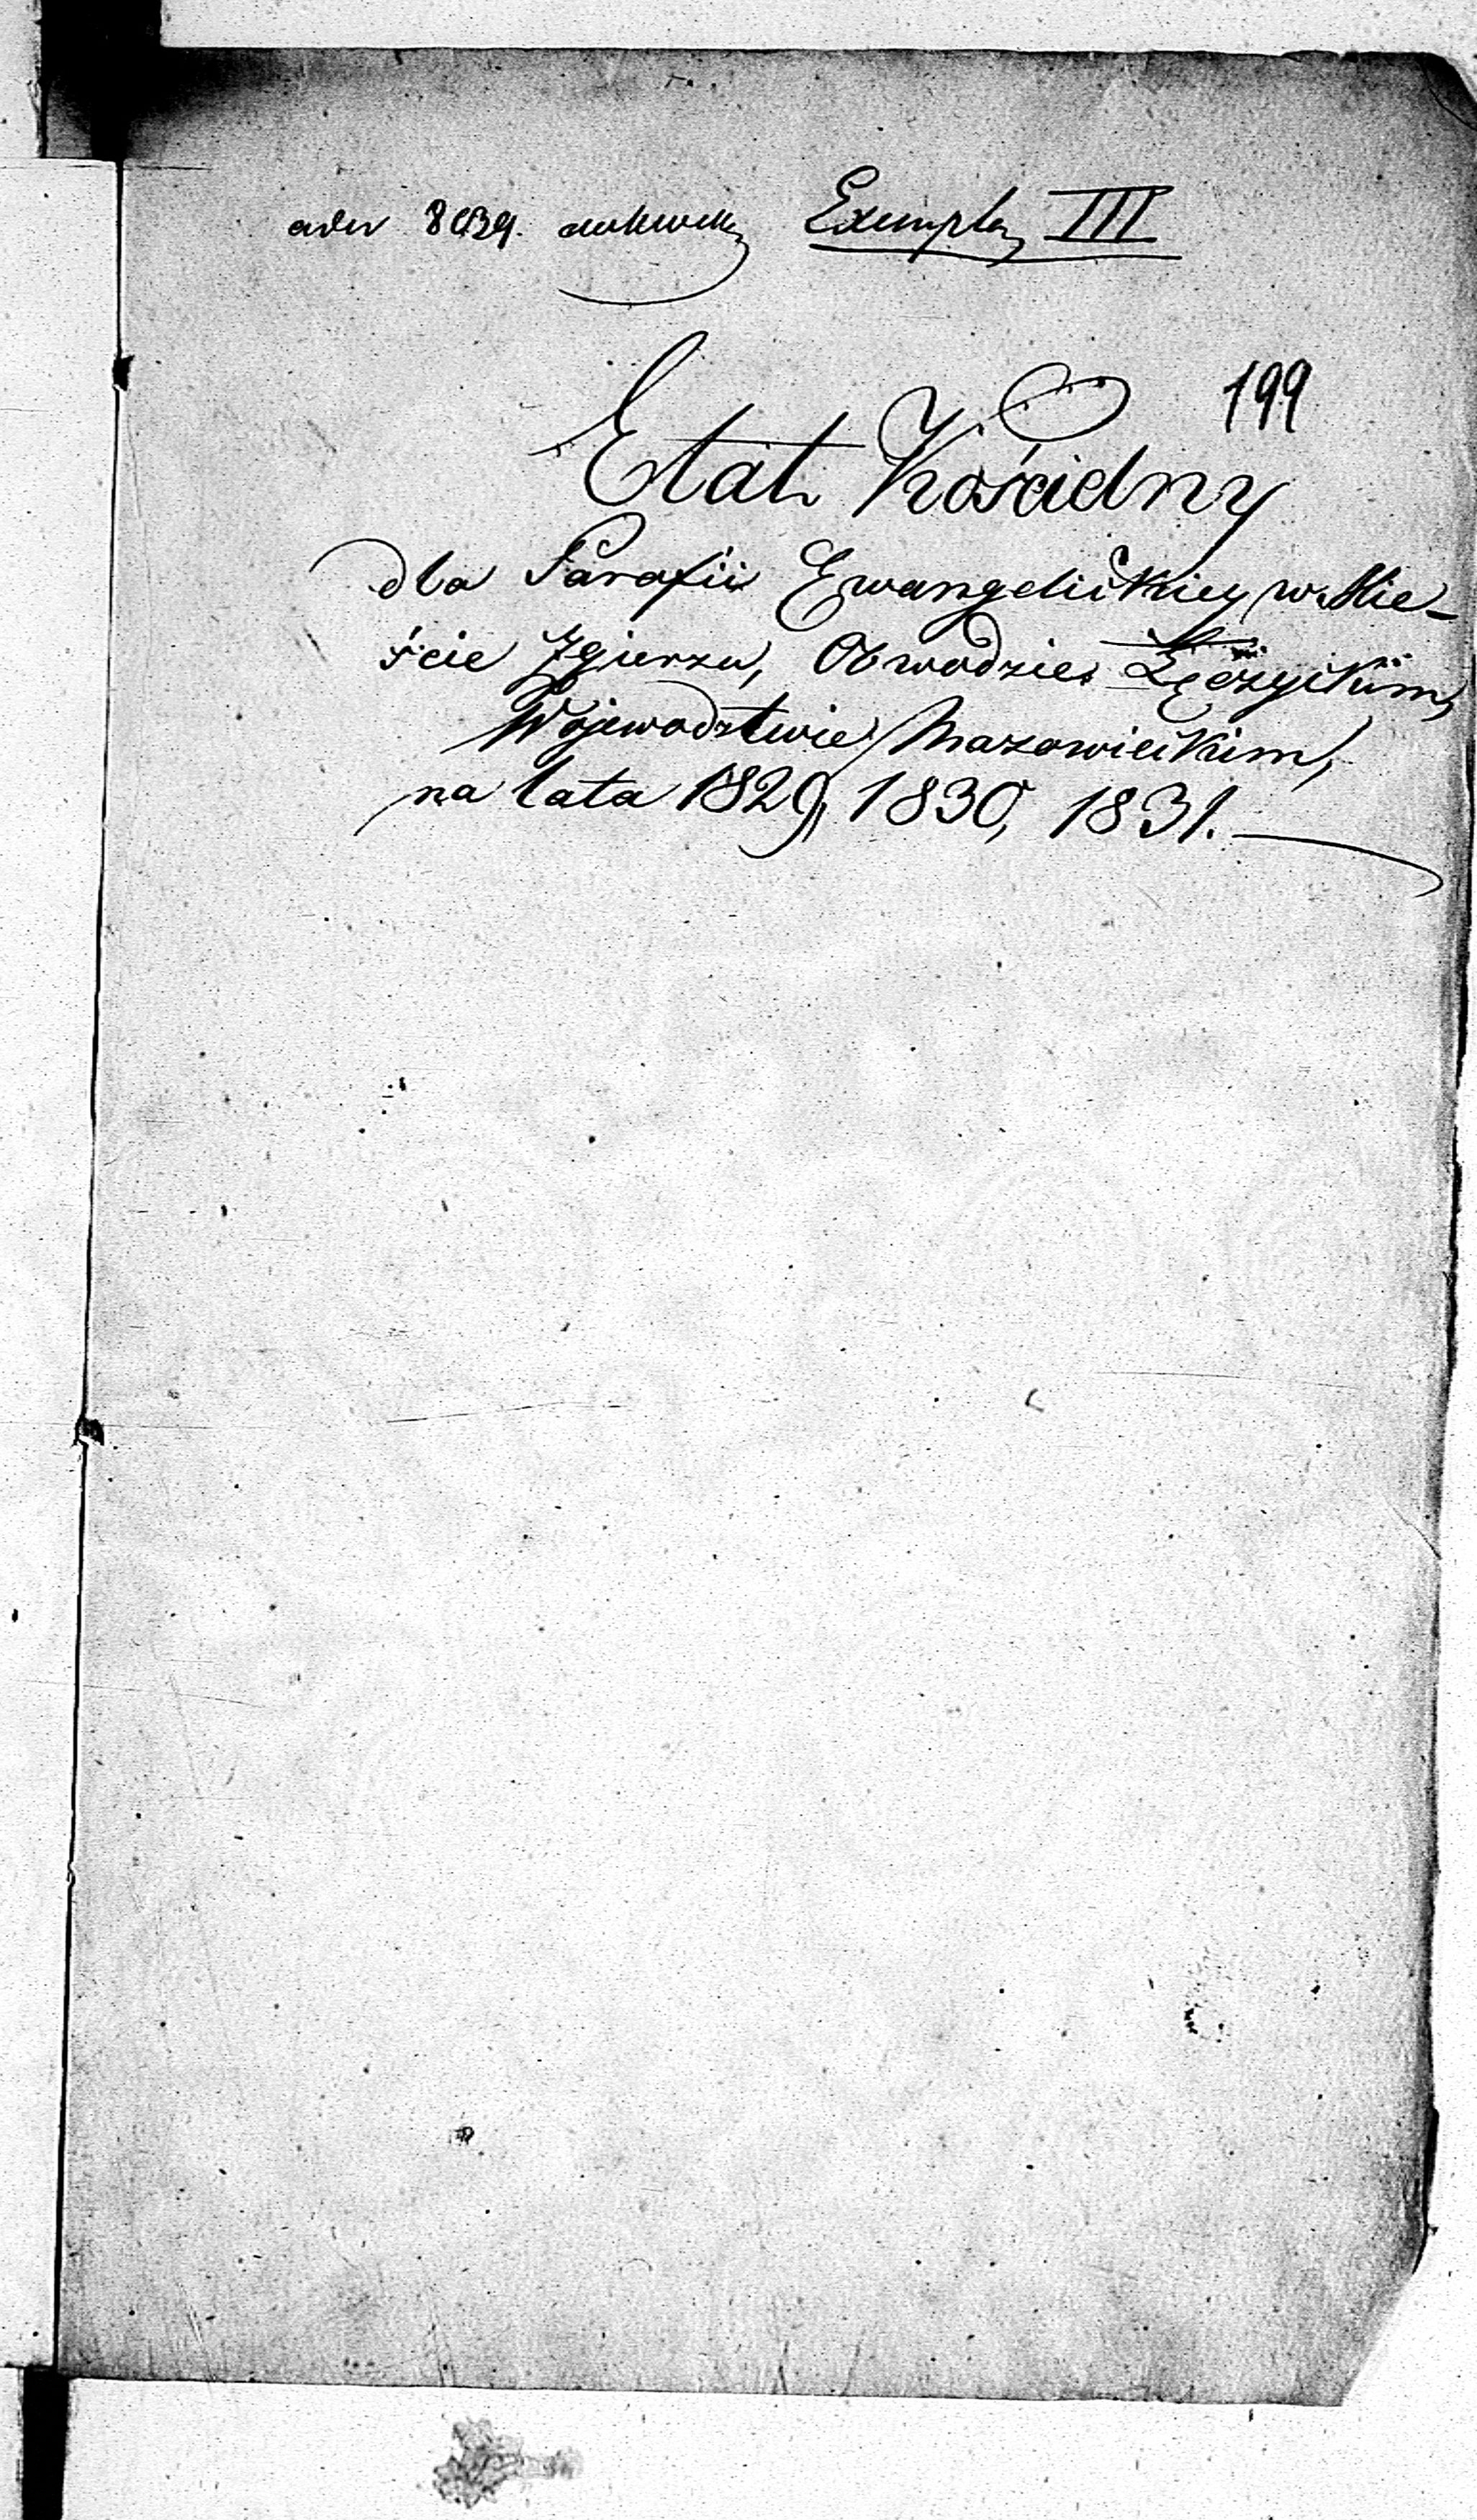 Exemplarz III
199
Etat Kościelny
dla Parafii Ewangelickiey w Mie-
ście Zgierzu, Obwodzie Łęczyckim,
Wojewodztwie Mazowieckim,
na lata 1829, 1830, 1831.